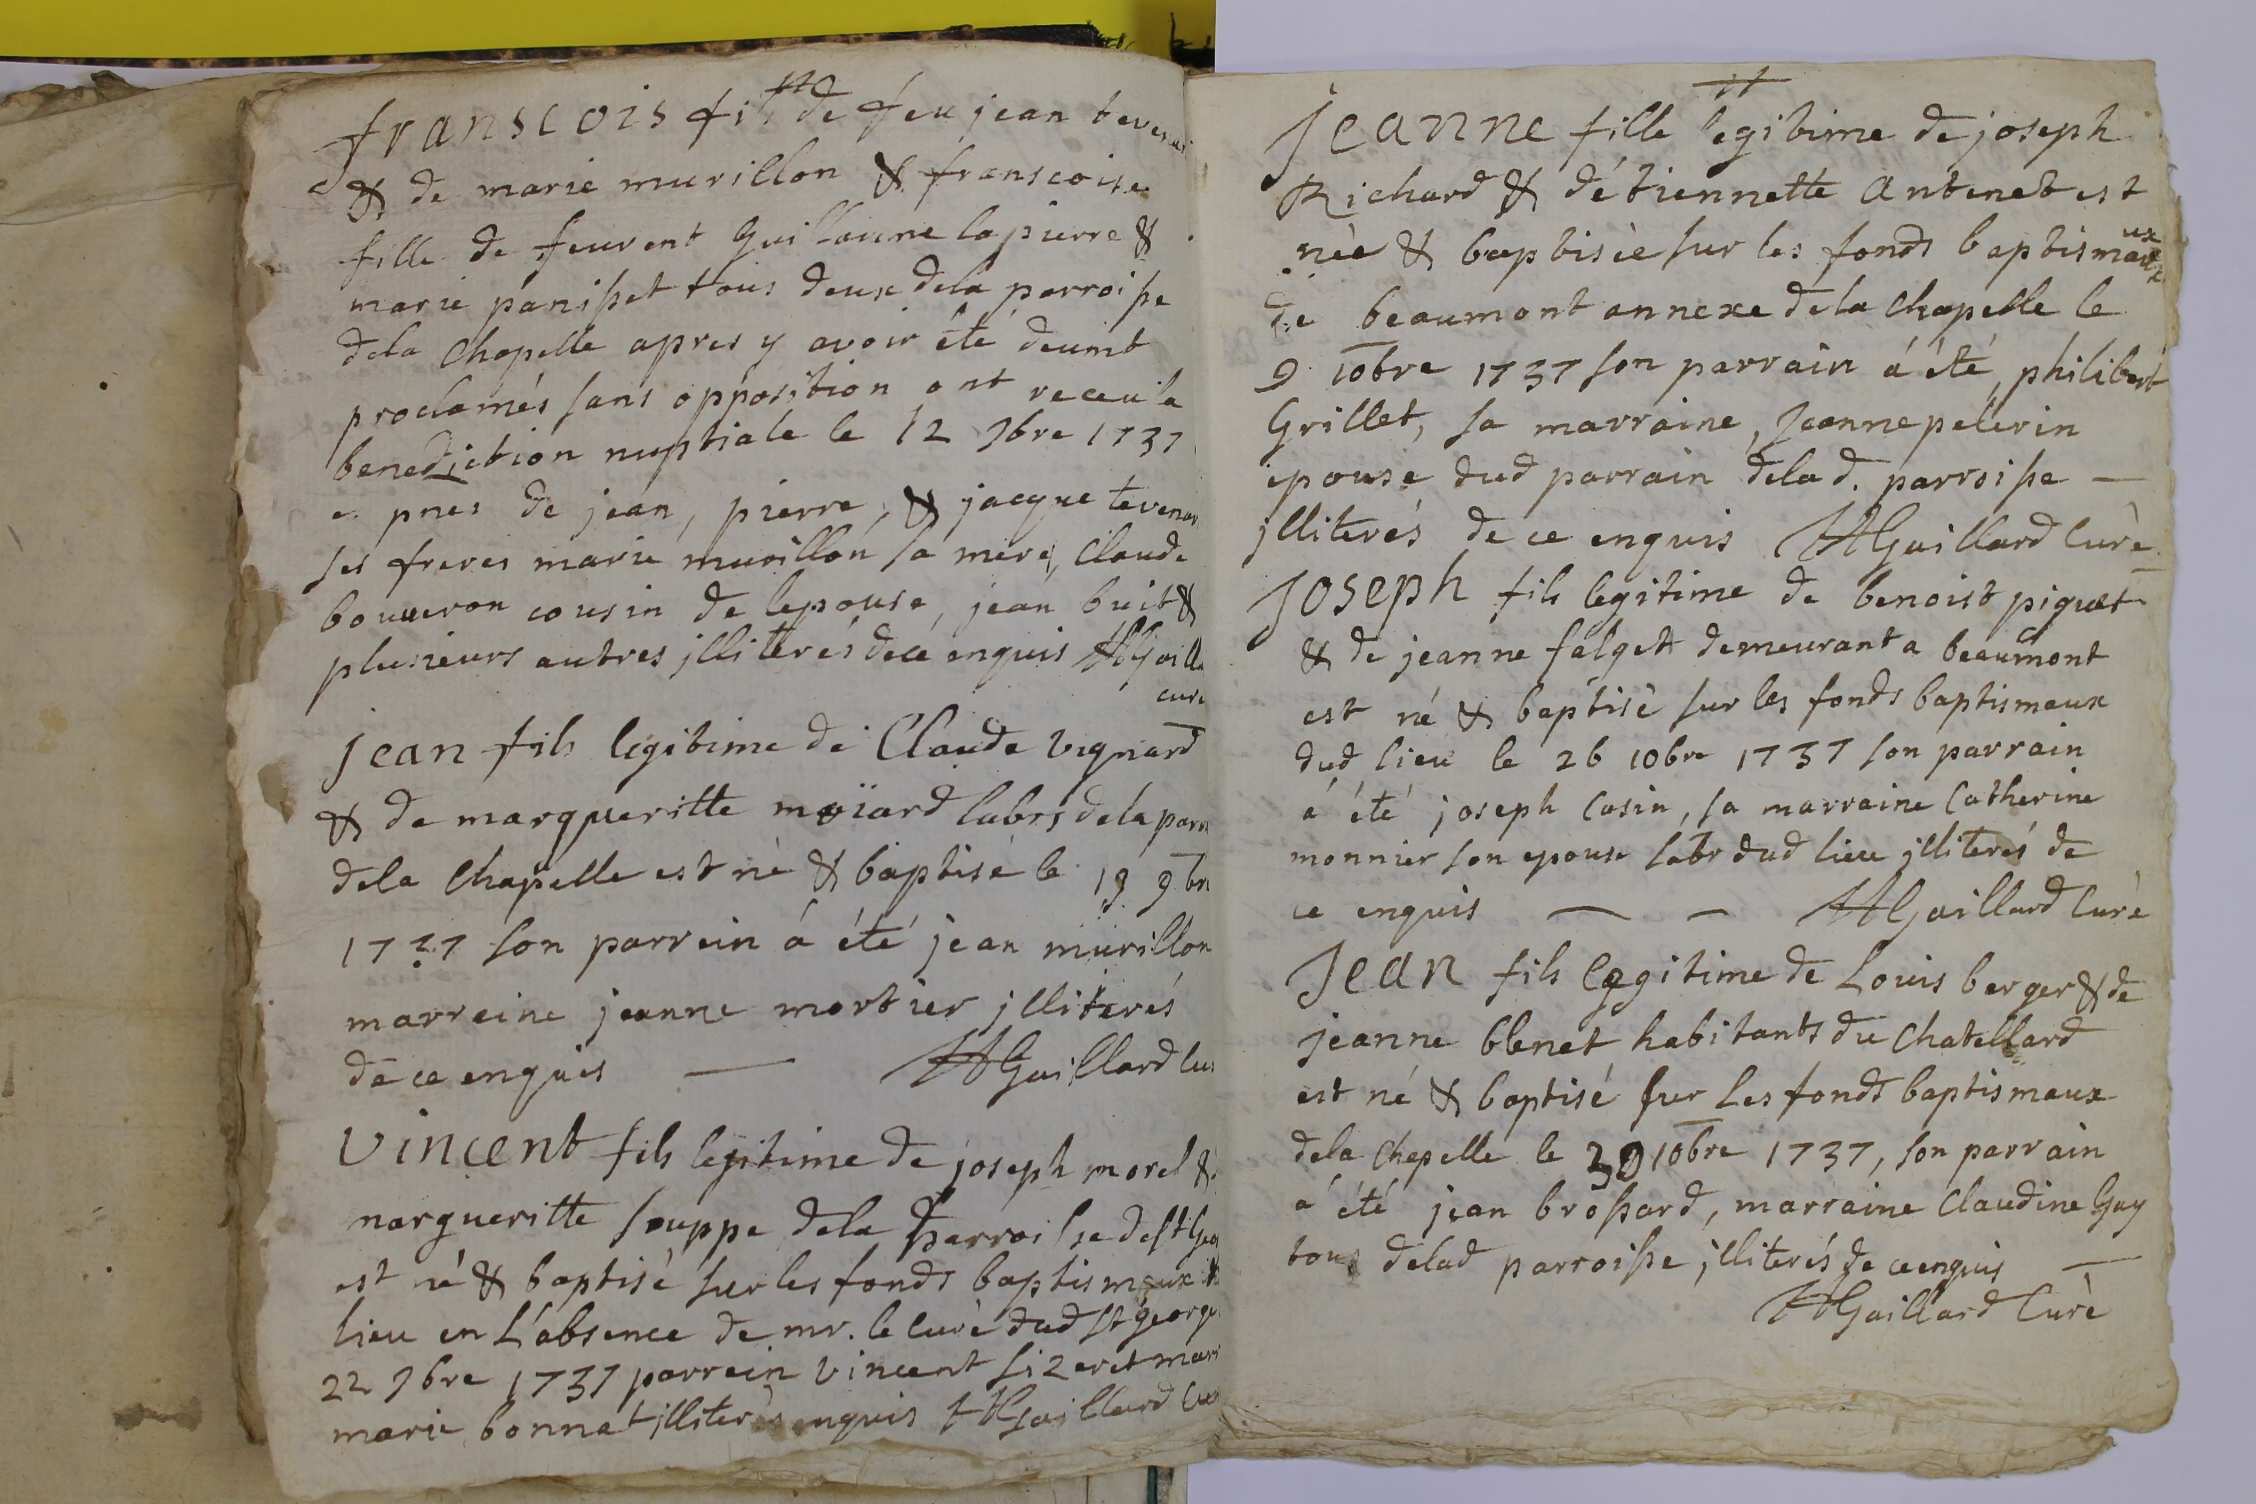 franscois fils de feu jean
& de marie murillon & franscoise
fille de feu vent Guillaume lapierre &
marie panisset tous deux dela parroisse
dela Chapelle apres y avoir été deumt
proclamés sans opposition ont receu la
benediction nuptiale le 12 9bre 1737
pnes de jean, pierre, & jacque
ses freres marie murillon sa mere, Claude
bouveron cousin de lepouse, jean buit &
plusieurs autres illiterés de ce enquis
curé
jean fils legitime de Claude vignard
& de margueritte moïard labrs dela
dela Chapelle est né & baptisé le 19 9bre
1737 son parrein á été jean murillon
marreine jeanne mortier illiterés
de ce enquis — HGaillard
vincent fils legitime de joseph morel &
margueritte souppe dela parroisse de st
est né & baptisé sur les fonds baptismaux
lieu en L'absence de mr. le curé dud st george
22 9bre 1737 parrein vincent sizeret
marie bonnat illiterés enquis HGaillard
jeanne fille legitime de joseph
Richard & d'étiennette antenet est
née & baptisée sur les fonds baptismaux
de beaumont annexe dela Chapelle le
9 10bre 1737 son parrain á été, philibert
Grillet, sa marraine, jeanne pelerin
epouse dud parrain delad. parroisse —
illiterés de ce enquis HGaillard Curé
joseph fils legitime de benoist piquet
& de jeanne falgett demeurant a beaumont
est né & baptisé sur les fonds baptismaux
dud lieu le 26 10bre 1737 son parrain
á été joseph Casin, sa marraine Catherine
monnier son epouse labr dud lieu illiterés de
ce enquis — — HGaillard Curé
jean fils legitime de Louis berger & de
jeanne blenet habitants du Chatellard
est né & baptisé sur les fonds baptismaux
dela Chapelle le 30 10bre 1737, son parrain
á été jean brossard, marraine Claudine Guy
tous delad parroisse illiterés de ce enquis —
HGaillard Curé